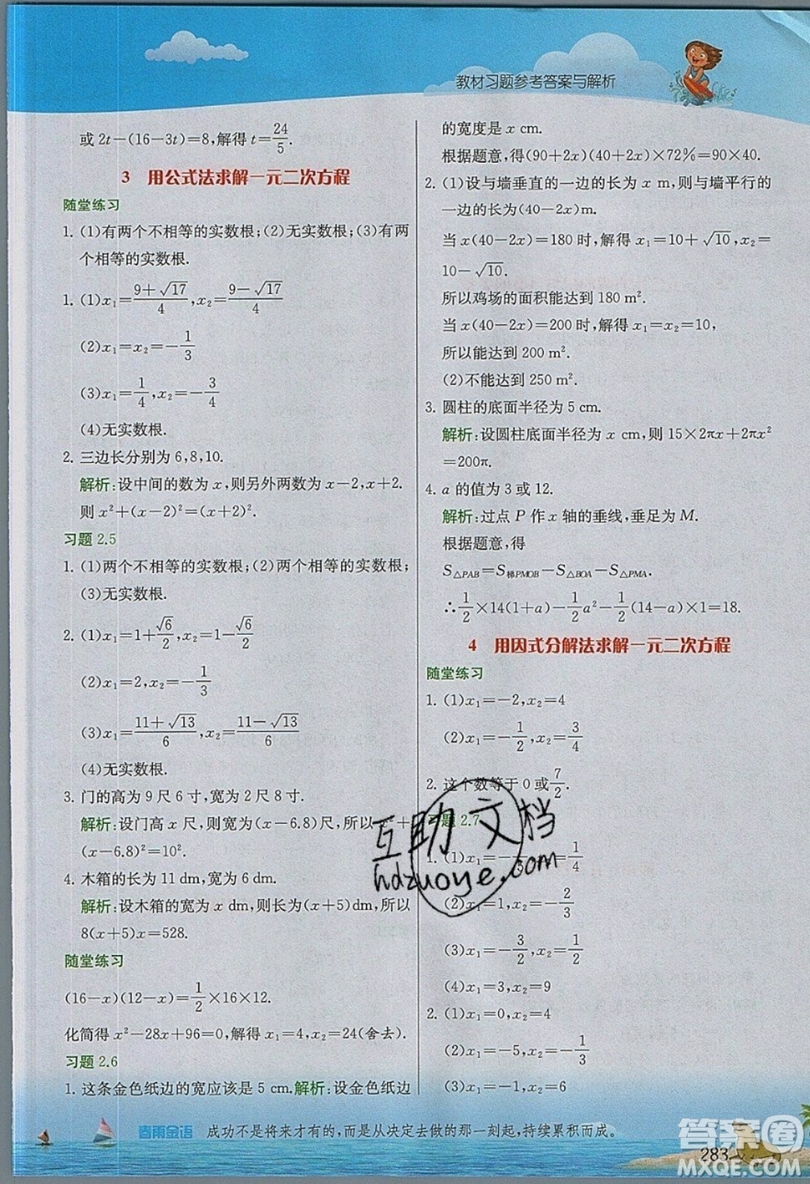 教材习题参考答案与解析
或 2t-(16-3t)=8,解得 t=24/5.
3 用公式法求解一元二次方程
随堂练习
1. (1)有两个不相等的实数根;(2)无实数根;(3)有两
个相等的实数根.
1. (1)x₁=(9+√17)/4,x₂=(9-√17)/4
(2)x₁=x₂=-1/3
(3)x₁=1/4,x₂=-3/4
(4)无实数根.
2. 三边长分别为 6,8,10.
解析:设中间的数为 x,则另外两数为 x-2,x+2.
则 x²+(x-2)²=(x+2)².
习题 2.5
1. (1)两个不相等的实数根;(2)两个相等的实数根;
(3)无实数根.
2. (1)x₁=1+√6/2,x₂=1-√6/2
(2)x₁=2,x₂=-1/3
(3)x₁=(11+√13)/6,x₂=(11-√13)/6
(4)无实数根.
3. 门的高为 9 尺 6 寸,宽为 2 尺 8 寸.
解析:设门高 x 尺,则宽为(x-6.8)尺,所以 x²+
(x-6.8)²=10².
4. 木箱的长为 11 dm,宽为 6 dm.
解析:设木箱的宽为 x dm,则长为(x+5)dm,所以
8(x+5)x=528.
随堂练习
(16-x)(12-x)=1/2×16×12.
化简得 x²-28x+96=0,解得 x₁=4,x₂=24(舍去).
习题 2.6
1. 这条金色纸边的宽应该是 5 cm.解析:设金色纸边
的宽度是 x cm.
根据题意,得(90+2x)(40+2x)×72%=90×40.
2. (1)设与墙垂直的一边的长为 x m,则与墙平行的
一边的长为(40-2x)m.
当 x(40-2x)=180 时,解得 x₁=10+√10,x₂=
10-√10.
所以鸡场的面积能达到 180 m².
当 x(40-2x)=200 时,解得 x₁=x₂=10,
所以能达到 200 m².
(2)不能达到 250 m².
3. 圆柱的底面半径为 5 cm.
解析:设圆柱底面半径为 x cm,则 15×2πx+2πx²
=200π.
4. a 的值为 3 或 12.
解析:过点 P 作 x 轴的垂线,垂足为 M.
根据题意,得
S△PAB=S梯PMOB-S△BOA-S△PMA.
∴1/2×14(1+a)-1/2a²-1/2(14-a)×1=18.
4 用因式分解法求解一元二次方程
随堂练习
1. (1)x₁=-2,x₂=4
(2)x₁=-1/2,x₂=3/4
2. 这个数等于 0 或7/2.
习题 2.7
1. (1)x₁=- 1/4
(2)x₁=1,x₂=-2/3
(3)x₁=-3/2,x₂=1/2
(4)x₁=3,x₂=9
2. (1)x₁=0,x₂=4
(2)x₁=-5,x₂=-1/3
(3)x₁=-1,x₂=6
互助文档
hdzuoye.com
春雨金语 成功不是将来才有的,而是从决定去做的那一刻起,持续累积而成。
283
答案圈
MXQE.COM